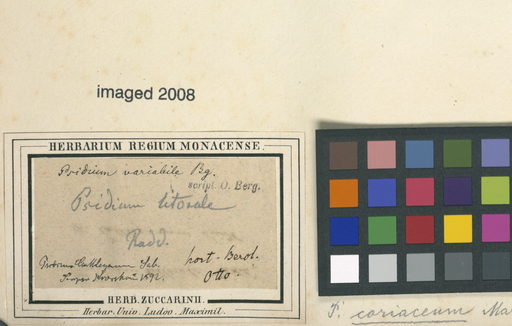 imaged 2008
HERBARIUM REGIUM MONACENSE.
Psidium variabile Bg.
script. O. Berg.
Psidium litorale
Radd.
hort. Berol.
Otto.
HERB. ZUCCARINII.
Herbar. Univ. Ludov. Maximil.
coriaceum Mar